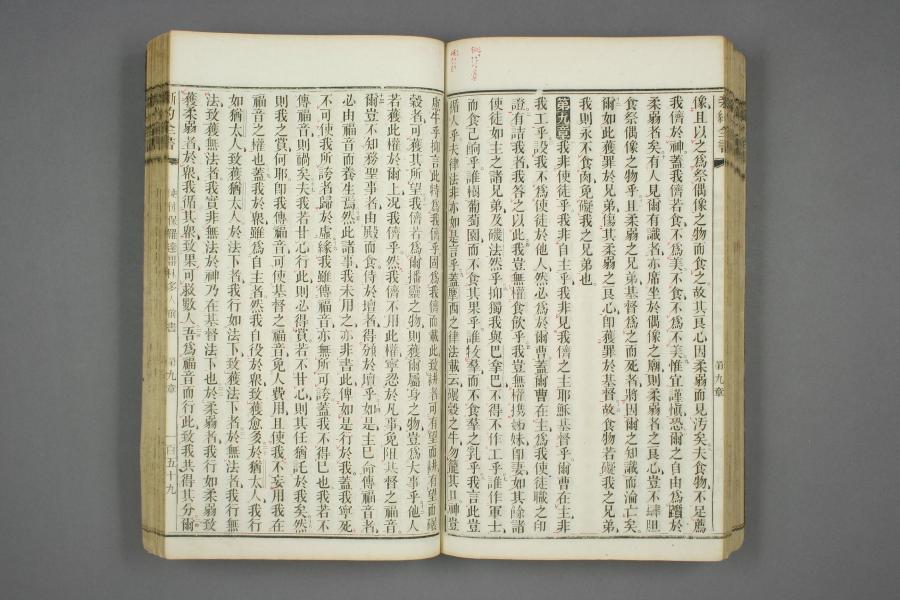 像且以之爲祭偶像之物而食之故其良心因柔弱而見汚矣夫食物不足薦
我儕於神蓋我儕若食不爲美不食不爲不美惟宜謹愼恐爾之自由爲躓於
柔弱者矣有人見爾有識者亦席坐於偶像之廟則柔弱者之良心豈不肆胆
食祭偶像之物乎且柔弱之兄弟基督爲之而死者將因爾之知識而淪亡矣
爾如此獲罪於兄弟傷其柔弱之良心卽獲罪於基督故食物若礙我之兄弟
我則永不食肉免礙我之兄弟也
第九章我非使徒乎我非自主乎我非見我儕之主耶穌基督乎爾曹在主非
我工乎設我不爲使徒於他人然必爲於爾曹蓋爾曹在主爲我使徒職之印
證有詰我者我答之以此我豈無權食飲乎我豈無權携姊妹卽妻如其餘諸
使徒如主之諸兄弟及磯法然乎抑獨我與巴拿巴不得不作工乎誰作軍士
而食己餉乎誰樹葡萄園而不食其果乎誰牧羣而不食羣之乳乎我言此豈
循人乎夫律法非亦如是言乎蓋摩西之律法載云碾穀之牛勿籠其口神豈
慮牛乎抑言此特爲我儕乎固爲我儕而載此致耕者可有望而耕有望而碾
穀者可獲其所望我儕若爲爾播靈之物則獲爾屬身之物豈爲大事乎他人
若獲此權於爾上况我儕乎然我儕不用此權寧忍於凡事免阻基督之福音
爾豈不知務聖事者由殿而食侍於壇者得頒於壇乎如是主已命傳福音者
必由福音而養生焉然此諸事我未用之亦非書此俾如是行於我蓋我寧死
不可使我所誇者歸於虛緣我雖傳福音亦無所可誇蓋我不得已也我若不
傳福音則禍矣夫我若甘心行此則必得賞若不甘心則其任猶託於我矣然
則我之賞何耶卽我傳福音可使基督之福音免人費用且使我不妄用我在
福音之權也蓋我於衆雖爲自主者然我自役於衆致獲愈多於猶太人我行
如猶太人致獲猶太人於法下者我行如法下致獲法下者於無法者我行無
法致獲無法者我實非無法於神乃在基督法下也於柔弱者我行如柔弱致
獲柔弱者於衆我循其衆致果可救數人吾爲福音而行此致我共得其分爾
新約全書
第九章
一百五十九
第九章